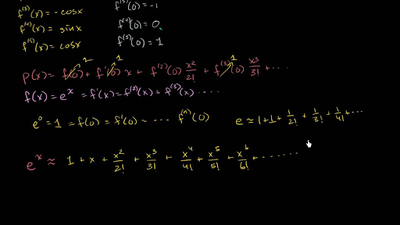 f⁽³⁾(x) = -cosx f⁽³⁾(0) = -1
f⁽⁴⁾(x) = sinx f⁽⁴⁾(0) = 0
f⁽⁵⁾(x) = cosx f⁽⁵⁾(0) = 1
p(x) = f(0) + f'(0) x + f⁽²⁾(0) x²/2! + f⁽³⁾(0) x³/3! + ...
f(x) = eˣ = f'(x) = f⁽²⁾(x) = f⁽³⁾(x) ....
e⁰ = 1 = f(0) = f'(0) = .... f⁽ⁿ⁾(0) e ≈ 1 + 1 + 1/2! + 1/3! + 1/4! + ...
eˣ ≈ 1 + x + x²/2! + x³/3! + x⁴/4! + x⁵/5! + x⁶/6! + .......